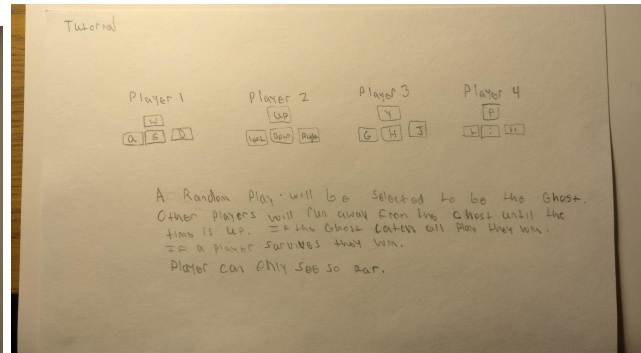 Tutorial
Player 1 Player 2 Player 3 Player 4
W UP Y P
a S D Left Down Right G H J L ; "
A Random Play will be Selected to be the Ghost.
Other Players will run away from the Ghost until the
time is up. If the Ghost catch all Play they win.
If a player survives they win.
Player can only see so far.